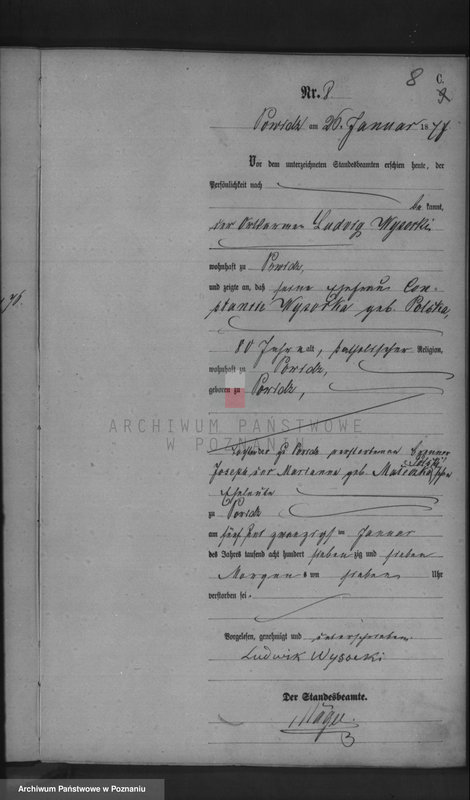 8 C.
Nr. 8.
Powidz am 26. Januar 1877
Vor dem unterzeichneten Standesbeamten erschien heute, der
Persönlichkeit nach
be kannt,
der Ortsarme Ludwig Wysocki
wohnhaft zu Powidz,
und zeigte an, daß seine Ehefrau Con-
stancie Wysocka geb. Polska,
80 Jahre alt, katholischer Religion,
wohnhaft zu Powidz,
geboren zu Powidz,
ARCHIWUM PAŃSTWOWE
W POZNANIU
Tochter der zu Powidz verstorbenen
Joseph und Marianna geb.
Eheleute
zu Powidz
am fünf und zwanzigsten Januar
des Jahres tausend acht hundert sieben zig und sieben
Morgens um sieben Uhr
verstorben sei.
Vorgelesen, genehmigt und unterschrieben
Ludwik Wysocki
Der Standesbeamte.
Archiwum Państwowe w Poznaniu